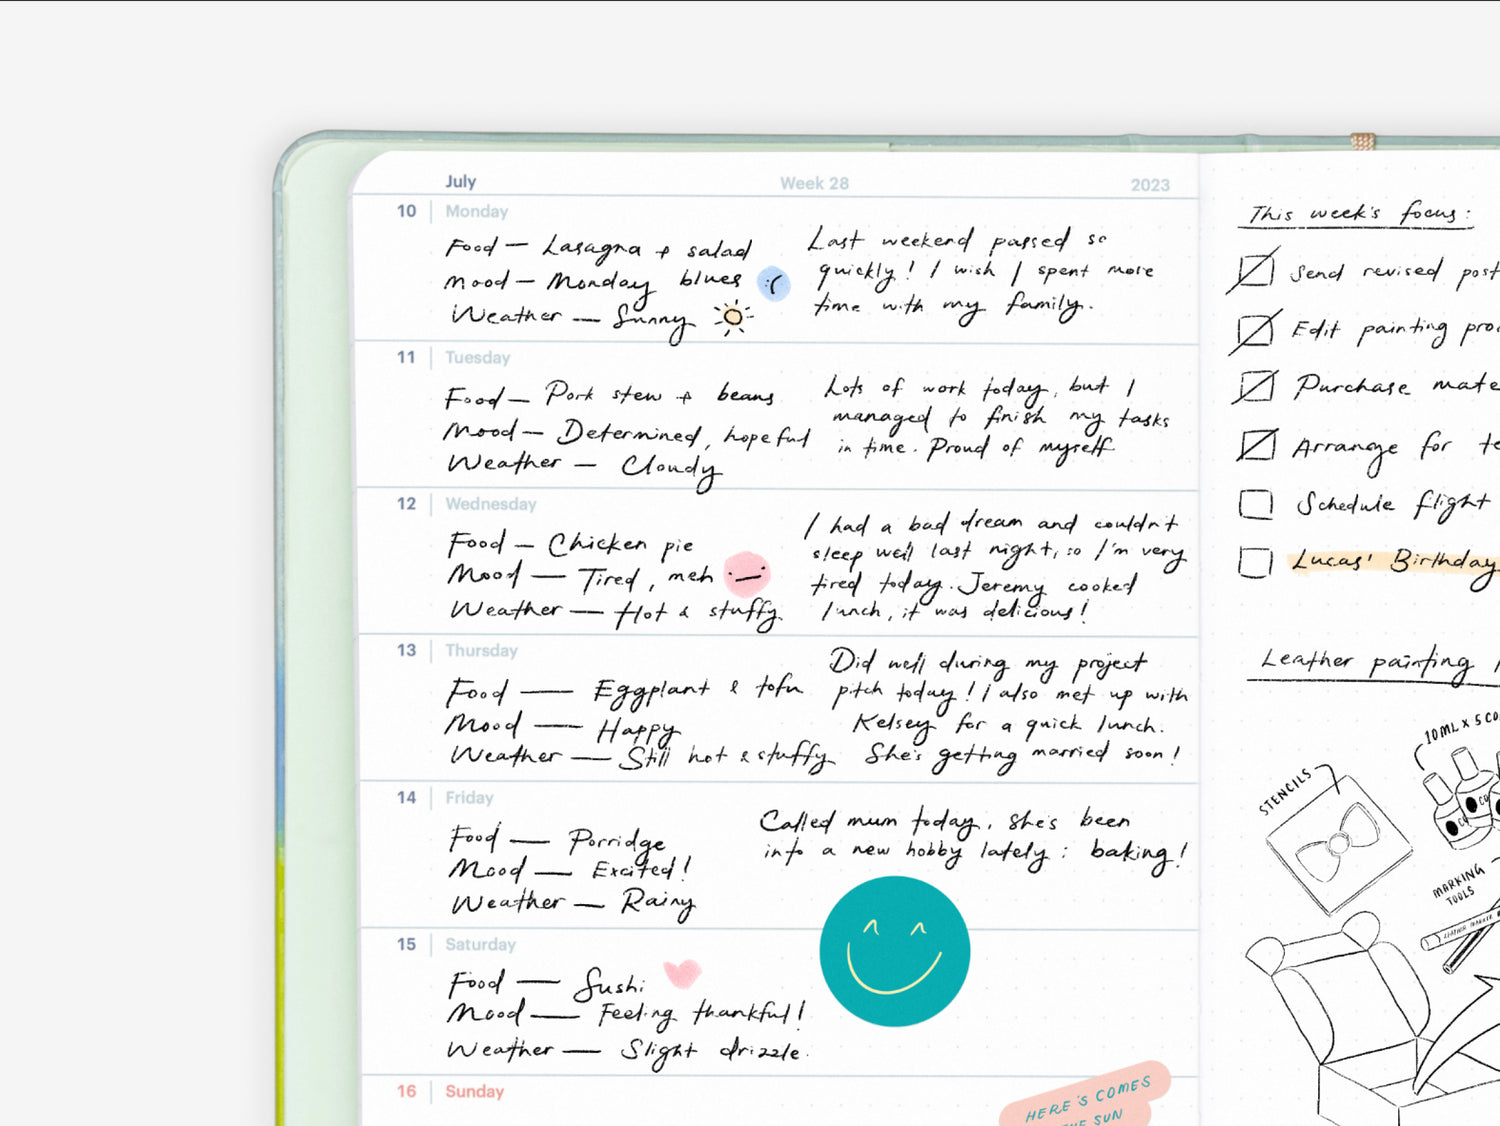 July Week 28 2023
10 Monday
Food — Lasagna + salad
Mood — Monday blues :(
Weather — Sunny
Last weekend passed so
quickly! I wish I spent more
time with my family.
11 Tuesday
Food — Pork stew + beans
Mood — Determined, hopeful
Weather — Cloudy
Lots of work today, but I
managed to finish my tasks
in time. Proud of myself.
12 Wednesday
Food — Chicken pie
Mood — Tired, meh
Weather — Hot & stuffy
I had a bad dream and couldn't
sleep well last night, so I'm very
tired today. Jeremy cooked
lunch, it was delicious!
13 Thursday
Food — Eggplant & tofu
Mood — Happy
Weather — Still hot & stuffy
Did well during my project
pitch today! I also met up with
Kelsey for a quick lunch.
She's getting married soon!
14 Friday
Food — Porridge
Mood — Excited!
Weather — Rainy
Called mum today, she's been
into a new hobby lately: baking!
15 Saturday
Food — Sushi
Mood — Feeling thankful!
Weather — Slight drizzle.
16 Sunday
HERE'S COMES
THE SUN
This week's focus:
Send revised post
Edit painting
Purchase mate
Arrange for te
Schedule flight
Lucas' Birthday
Leather painting
10ML X 5
STENCILS
MARKING
TOOLS